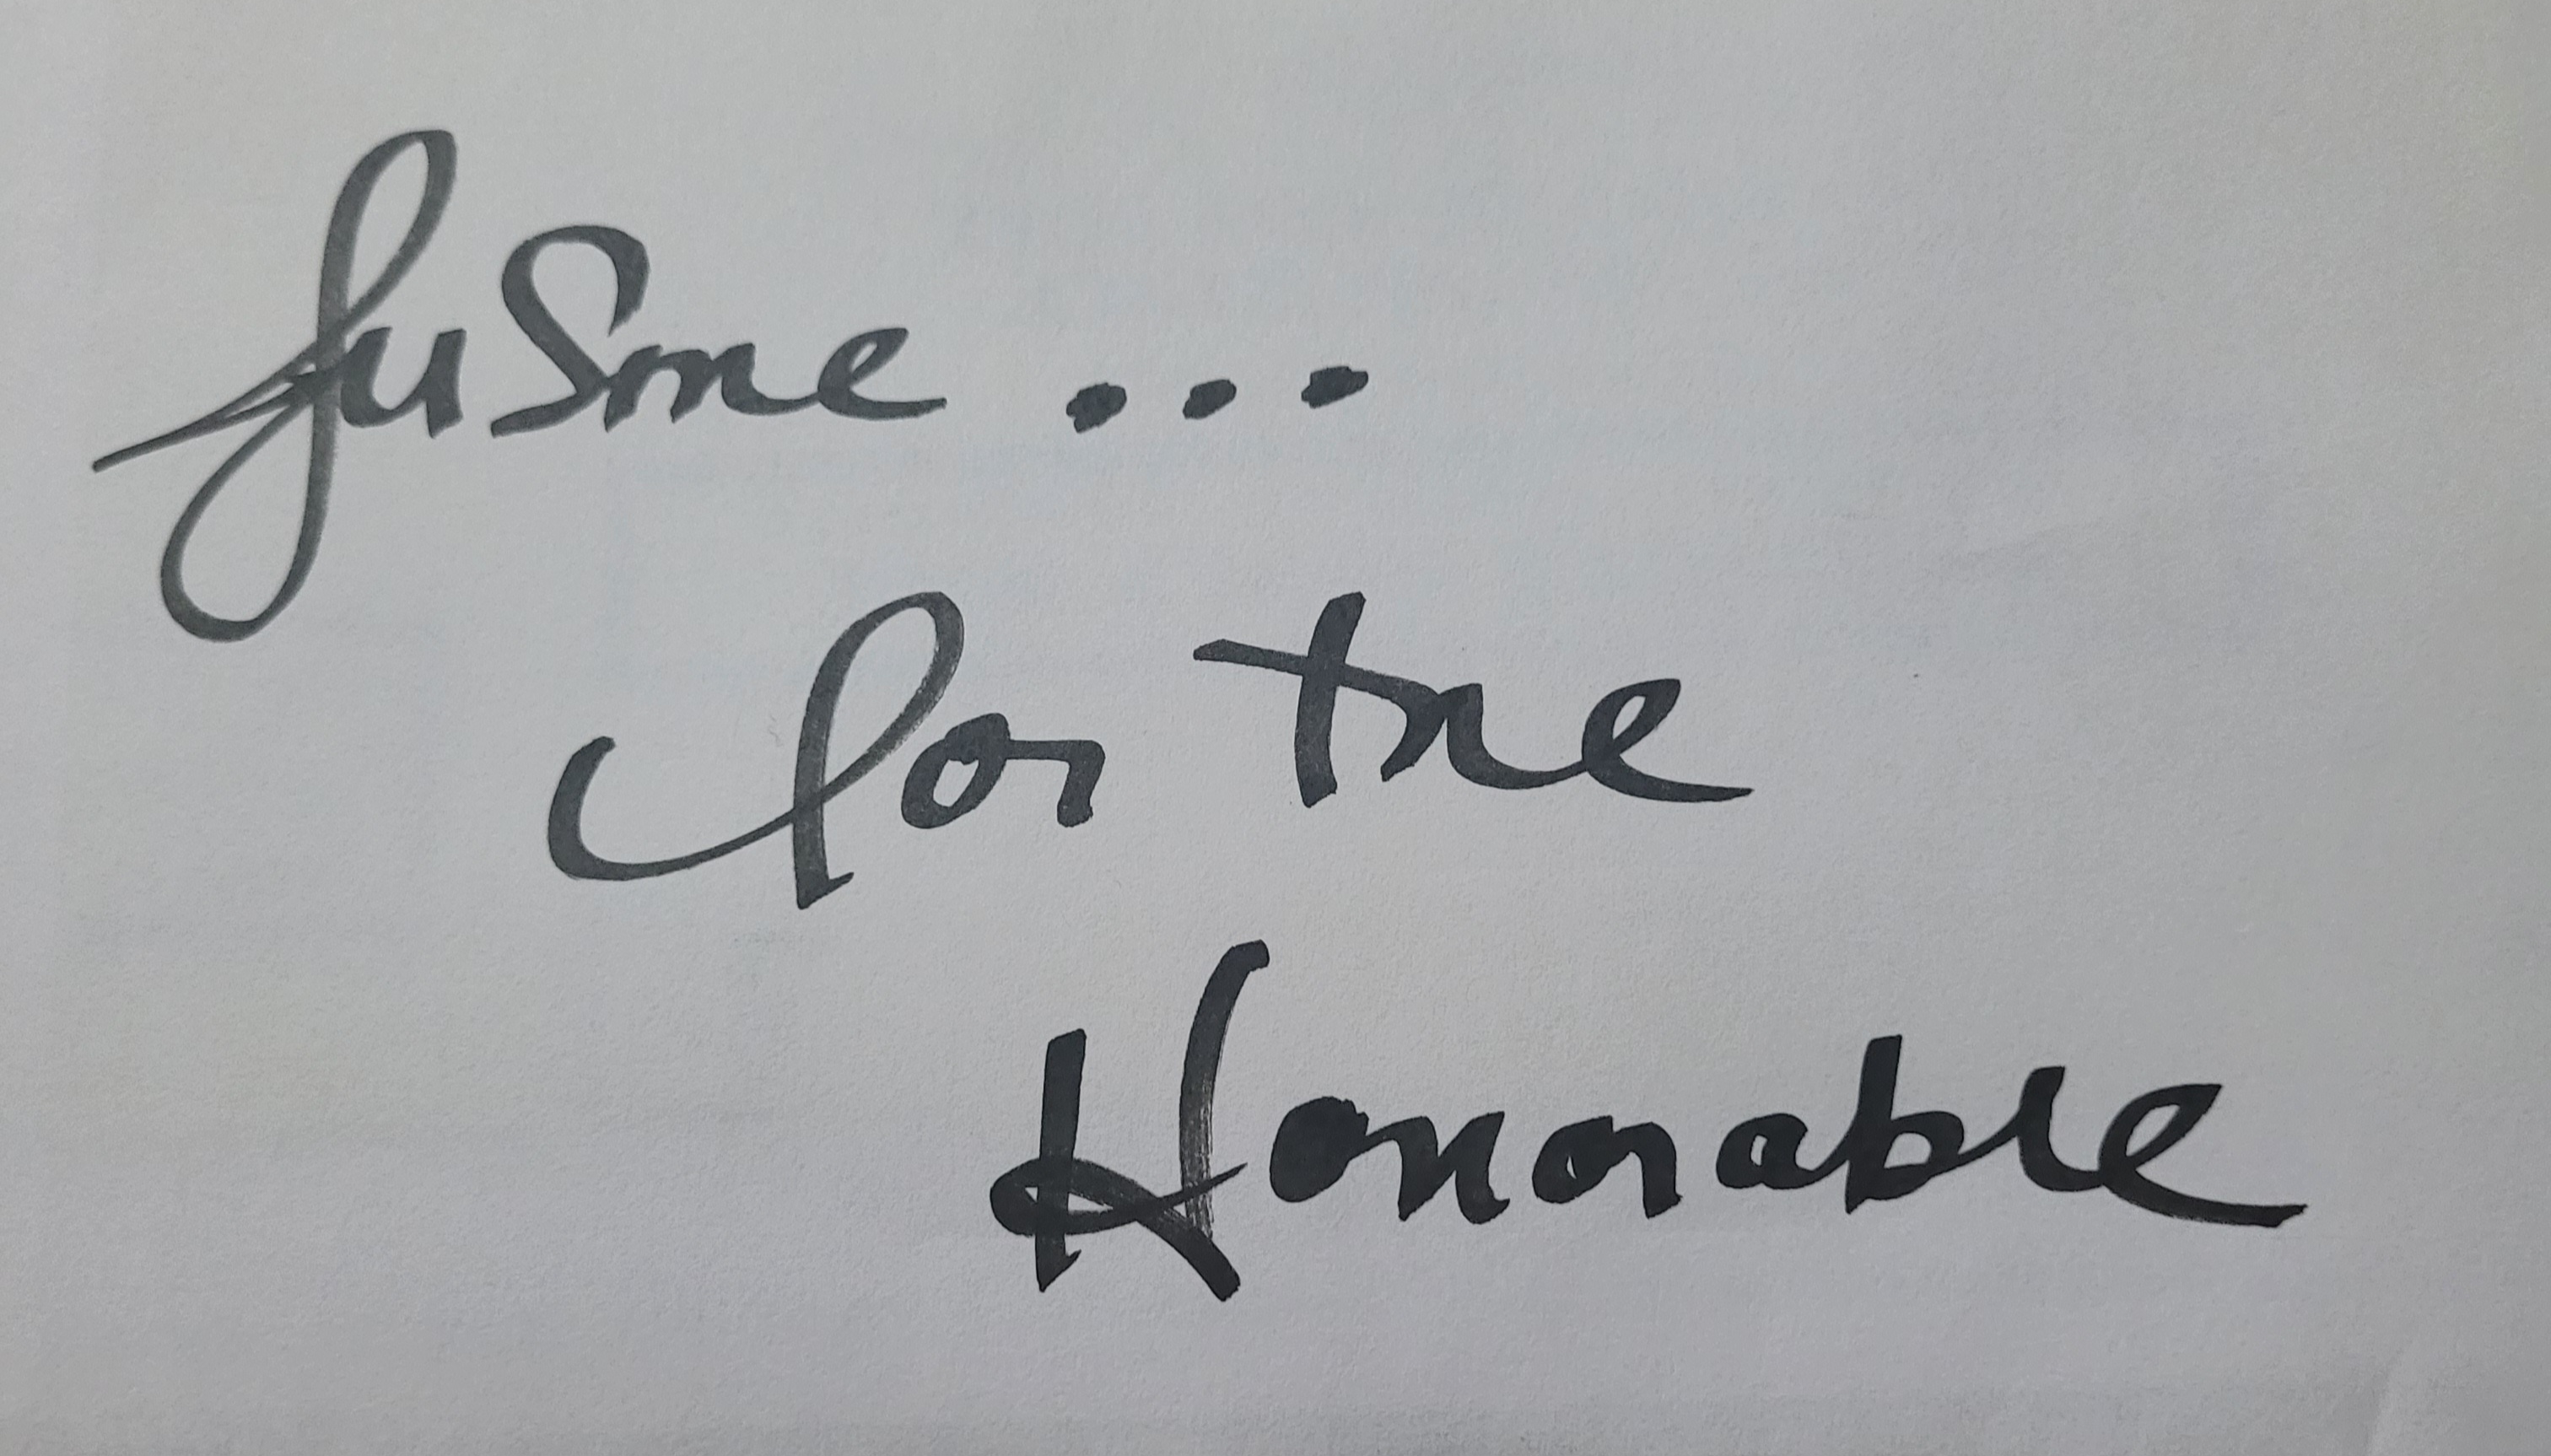 JuSme ...
for the
Honorable